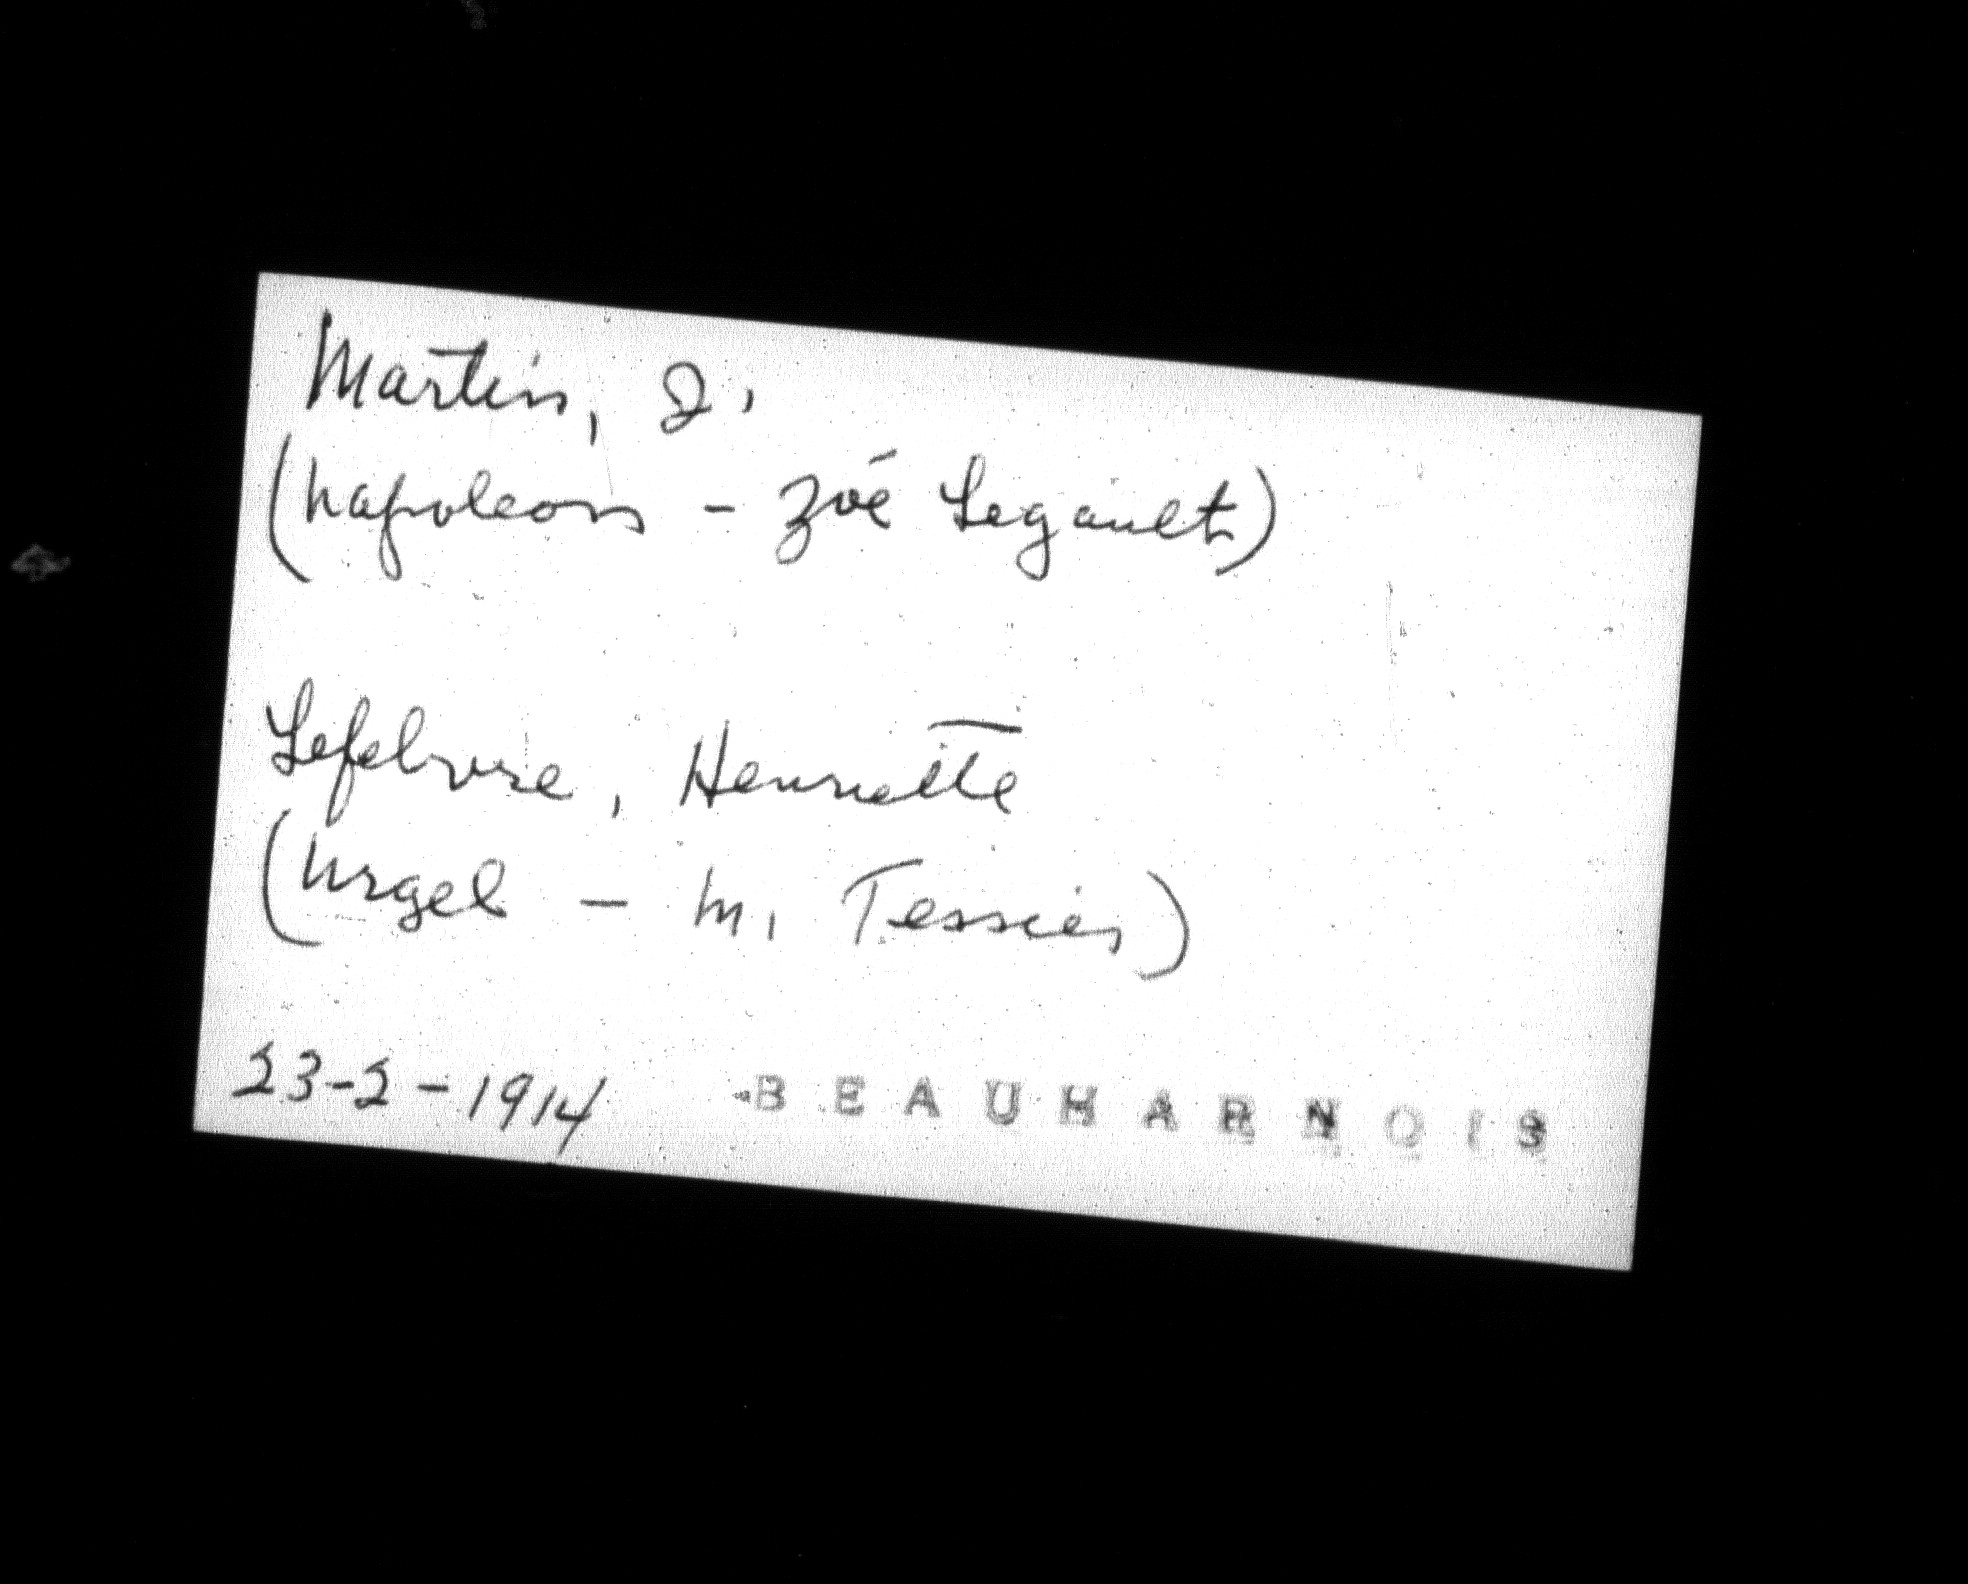 Martin, J.
(Napoleon - Zoé Legault)
Lefebvre, Henriette
(Urgel - M. Tessier)
23-2-1914 BEAUHARNOIS